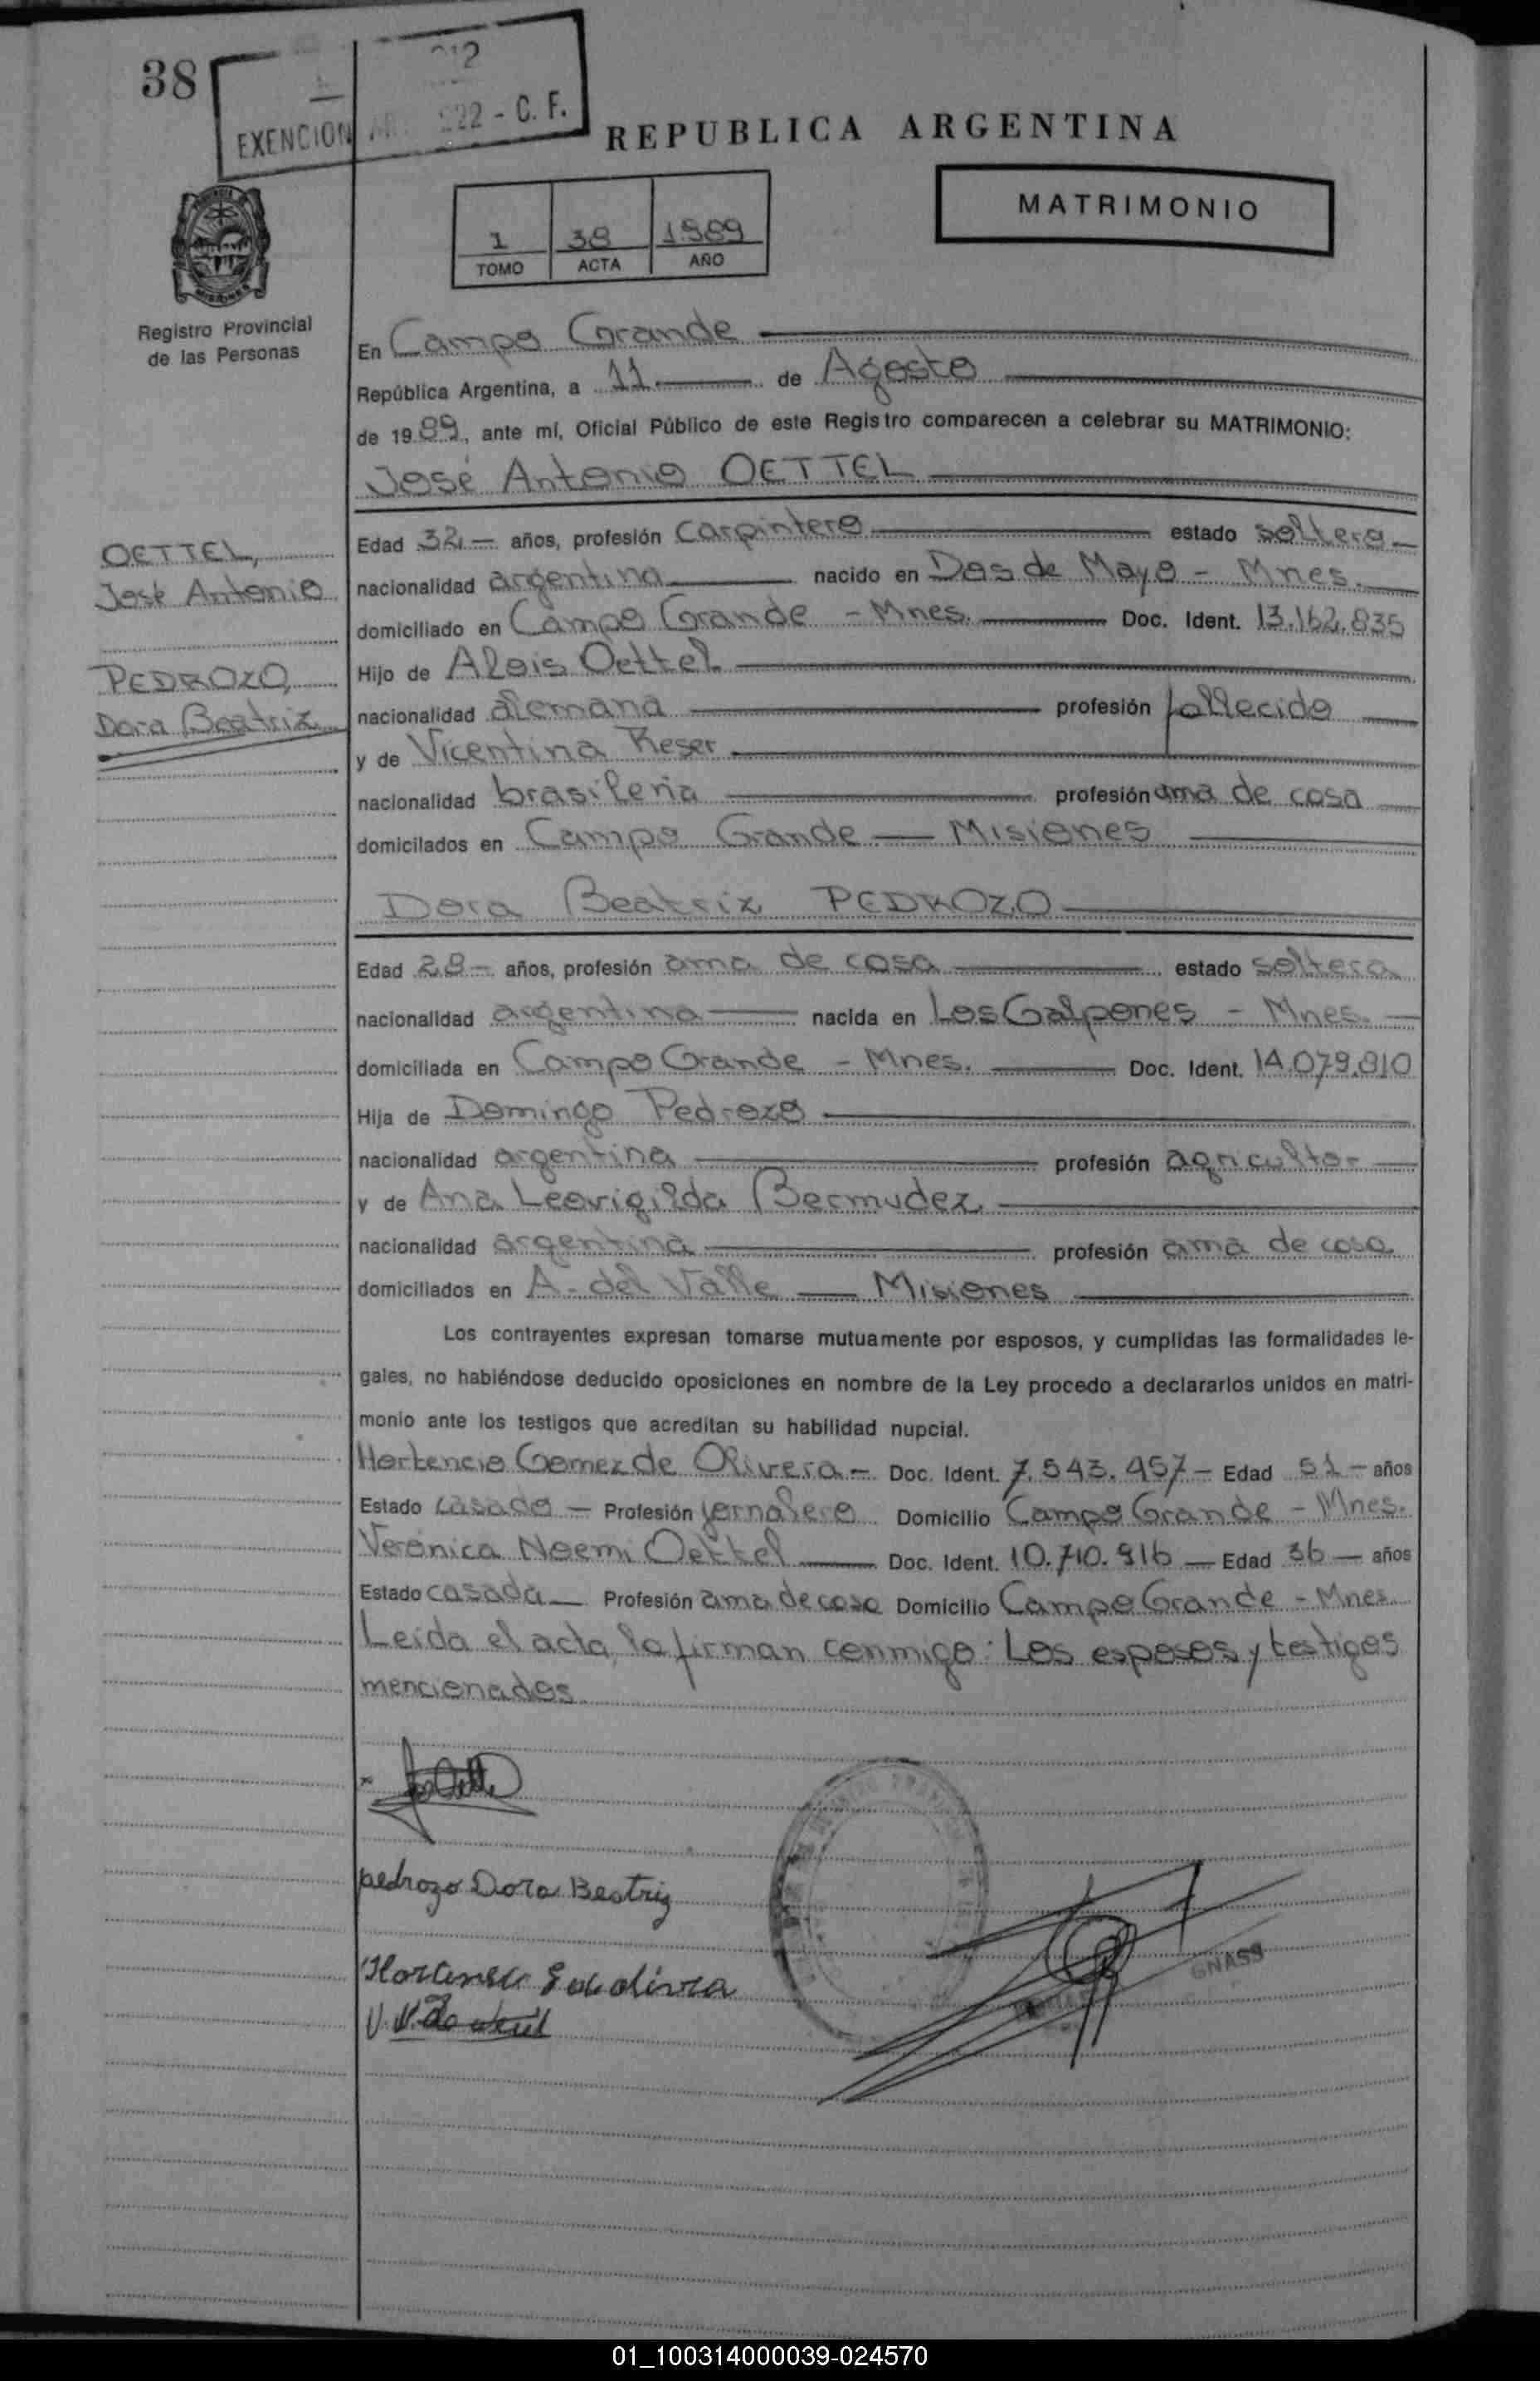 38
EXENCION 222 - C. F.
REPUBLICA ARGENTINA
MATRIMONIO
1 38 1989
TOMO ACTA AÑO
MISIONES
Registro Provincial
de las Personas
En Campo Grande
República Argentina, a 11 de Agosto
de 1989, ante mí, Oficial Público de este Registro comparecen a celebrar su MATRIMONIO:
José Antonio OETTEL
OETTEL,
José Antonio
PEDROZO,
Dora Beatriz
Edad 32 — años, profesión carpintero estado soltero
nacionalidad argentina nacido en Dos de Mayo - Mnes.
domiciliado en Campo Grande - Mnes. Doc. Ident. 13.162.835
Hijo de Alois Oettel
nacionalidad alemana profesión fallecido
y de Vicentina Reser
nacionalidad brasileña profesión ama de casa
domicilados en Campo Grande — Misiones
Dora Beatriz PEDROZO
Edad 28 — años, profesión ama de casa estado soltera
nacionalidad argentina nacida en Los Galpones - Mnes.
domiciliada en Campo Grande - Mnes. Doc. Ident. 14.079.810
Hija de Domingo Pedrozo
nacionalidad argentina profesión agricultor
y de Ana Leovigilda Bermudez
nacionalidad argentina profesión ama de casa
domiciliados en A. del Valle — Misiones
Los contrayentes expresan tomarse mutuamente por esposos, y cumplidas las formalidades le-
gales, no habiéndose deducido oposiciones en nombre de la Ley procedo a declararlos unidos en matri-
monio ante los testigos que acreditan su habilidad nupcial.
Hortencio Gomez de Olivera - Doc. Ident. 7.543.457 - Edad 51 - años
Estado casado - Profesión jornalero Domicilio Campo Grande - Mnes.
Verónica Noemi Oettel Doc. Ident. 10.710.916 - Edad 36 - años
Estado casada Profesión ama de casa Domicilio Campo Grande - Mnes.
Leída el acta, la firman conmigo: Los esposos y testigos
mencionados.
pedrozo Dora Beatriz
GNASS
01_100314000039-024570